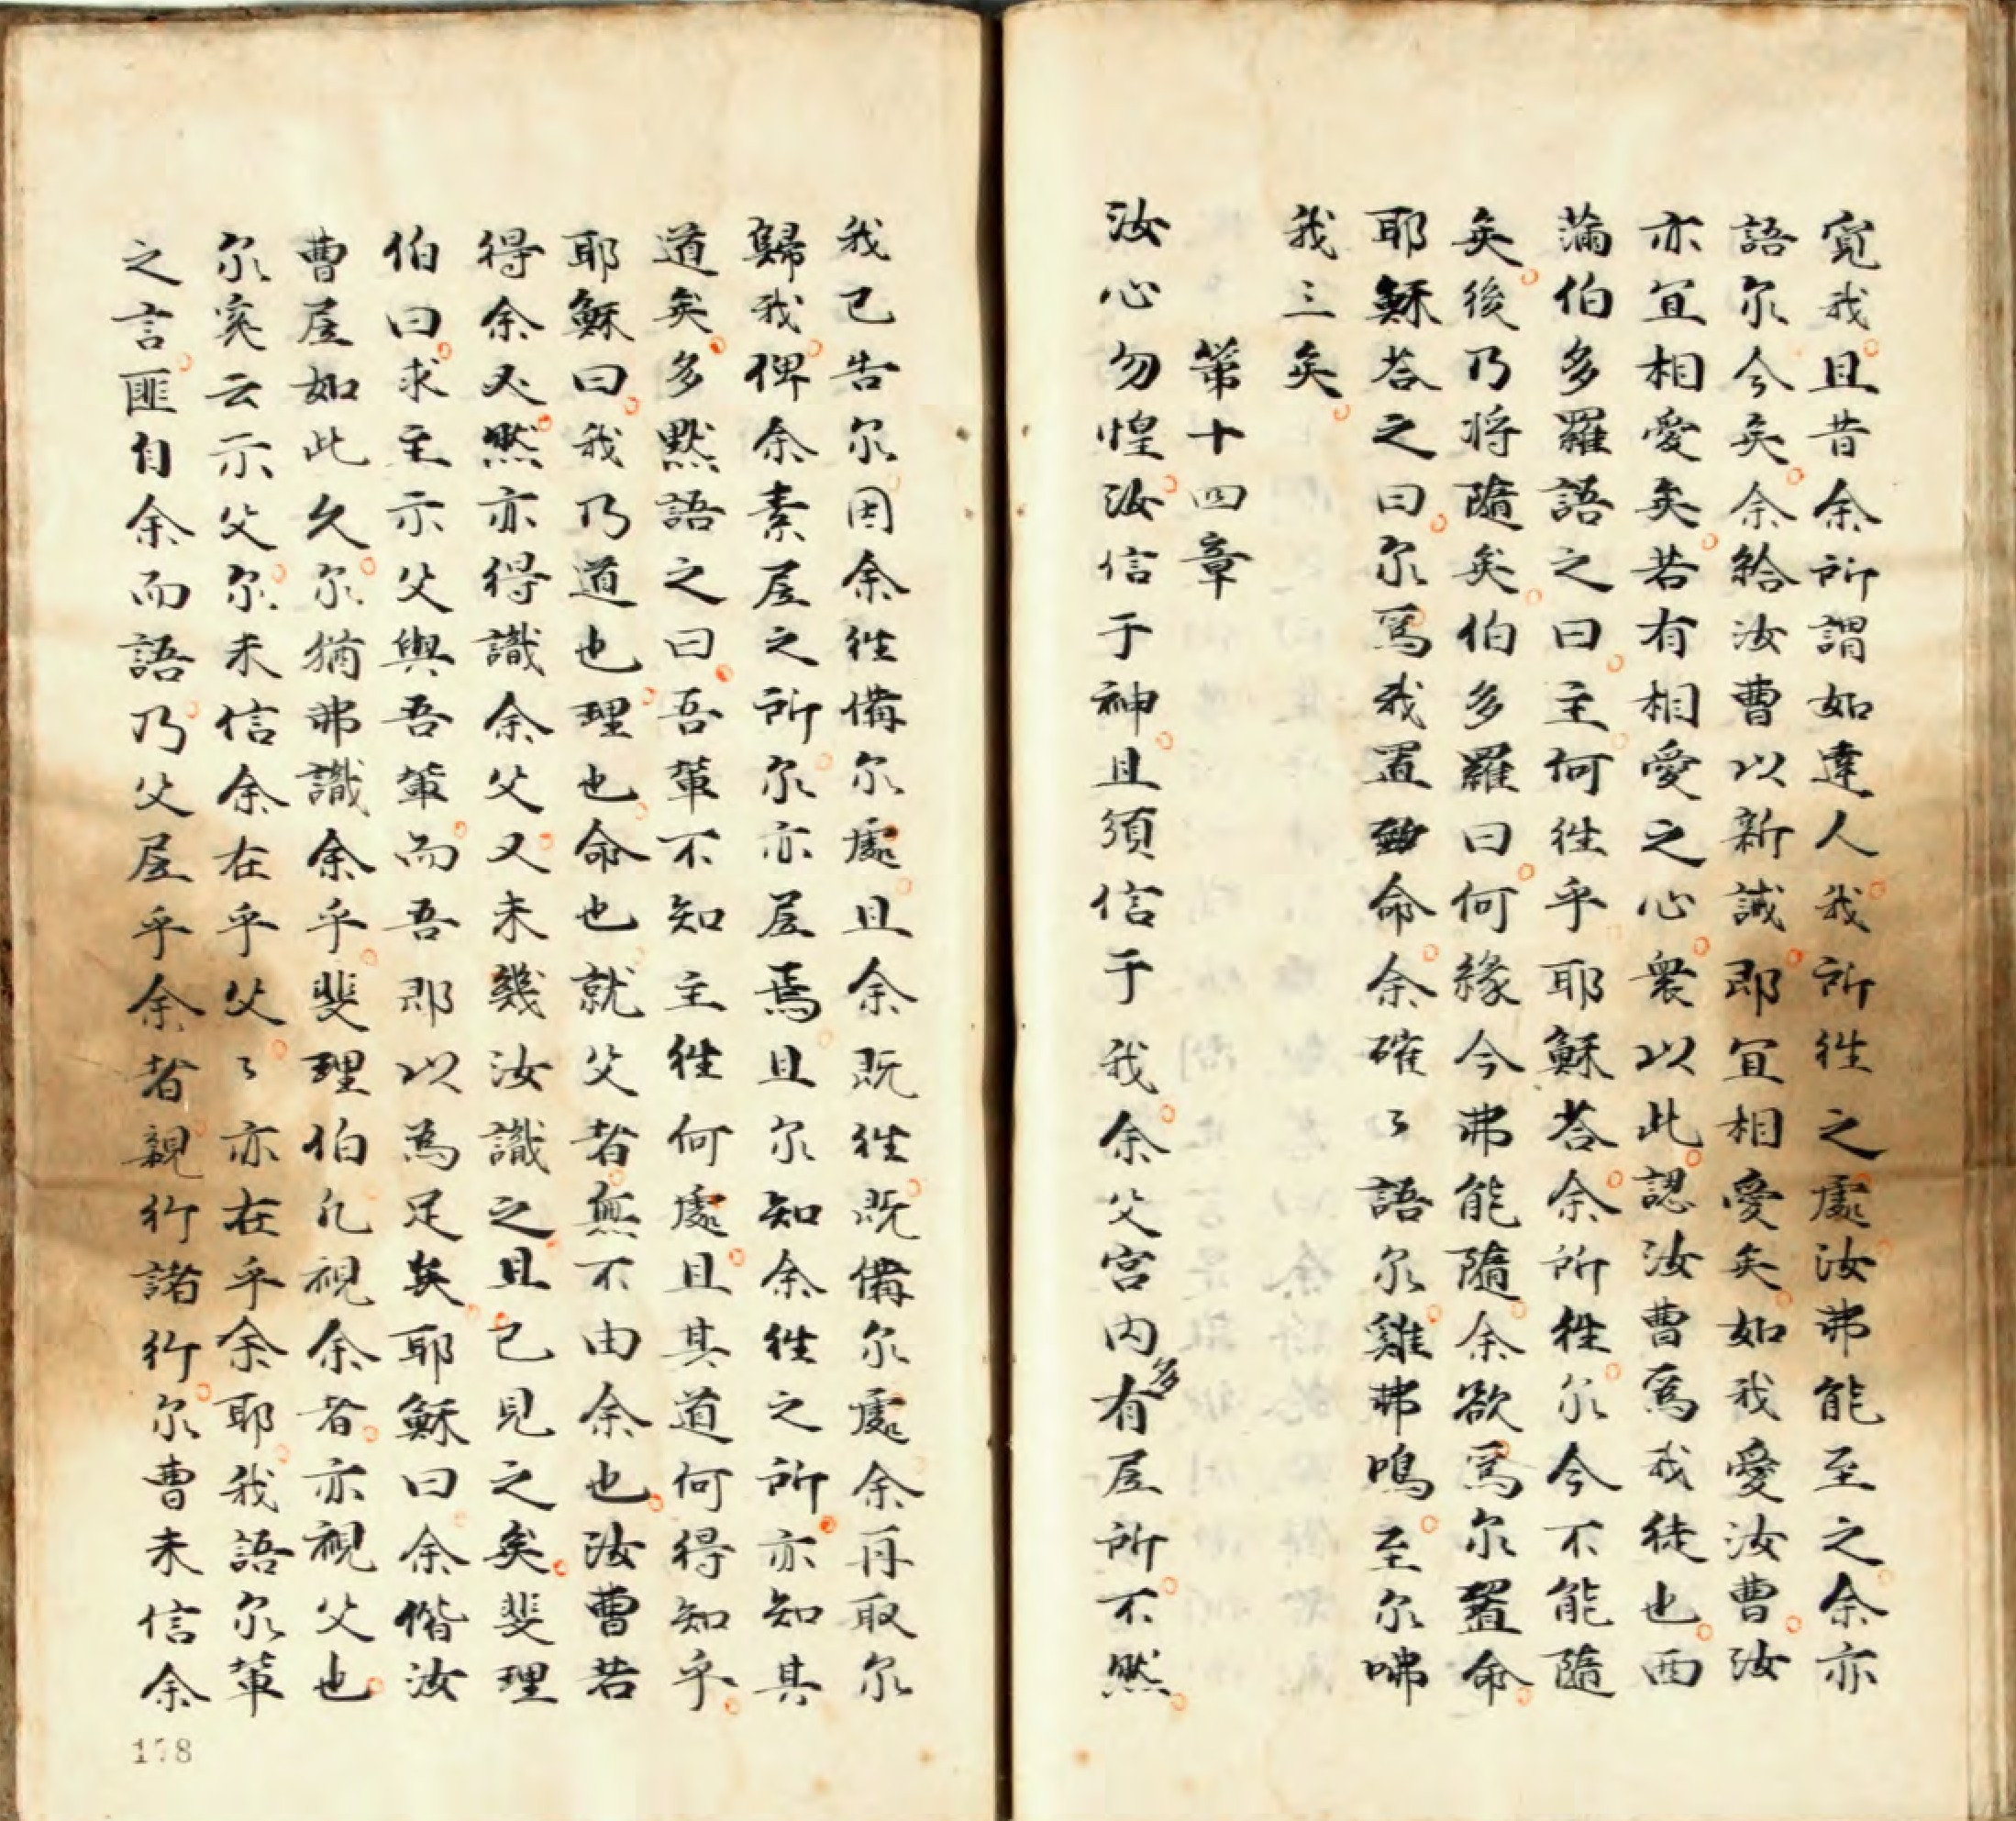 覓我且昔余所謂如達人我所徃之處汝弗能至之余亦
語尓今矣余給汝曹以新誡即宜相愛矣如我愛汝曹汝
亦宜相愛矣若有相愛之心衆以此認汝曹爲我徒也西
蒲伯多羅語之曰主何徃乎耶穌荅余所徃尓今不能隨
矣後乃将隨矣伯多羅曰何緣今弗能隨余欲爲尓置命
耶穌荅之曰尓爲我置命余確〻語尓雞弗鳴至尓咈
我三矣
第十四章
汝心勿惶汝信于神且須信于我余父宫内多有居所不然
我已告尓因余徃備尓處且余既徃既備尓處余再取尓
歸我俾余素居之所尓亦居焉且尓知余徃之所亦知其
道矣多黙語之曰吾輩不知主徃何處且其道何得知乎
耶穌曰我乃道也理也命也就父者無不由余也汝曹若
得余必然亦得識余父又未幾汝識之且已見之矣斐理
伯曰求主示父與吾輩而吾即以為足矣耶穌曰余偕汝
曹居如此久尓猶弗識余乎斐理伯凡視余者亦視父也
尓奚云示父尓未信余在乎父〻亦在乎余耶我語尓輩
之言匪自余而語乃父居乎余者親行諸行尓曹未信余
178